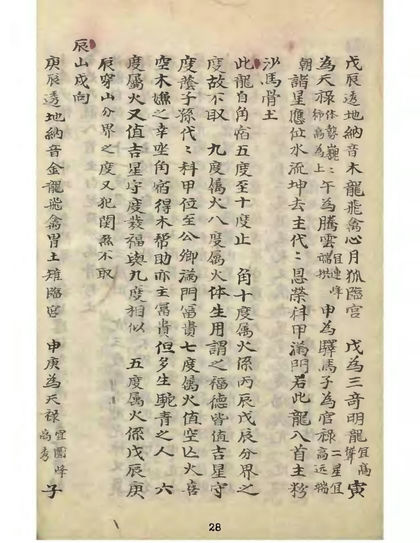 戊辰透地納音木龍飛禽心月狐臨宮　戊為三奇明龍宜高聳寅
為天祿體勢巍巍師高為上午為騰雲宜連峰端拱申為驛馬子為官祿二星宜高遠端
朝諸星應位水流坤去主代代恩榮科甲滿門若此龍八首主粉
沙馬骨土
此龍自角宿五度至十度止　角十度屬火係丙辰戊辰分界之
度故不取　九度屬火八度屬火体生用謂之福德皆值吉星守
度蔭子孫代代科甲位至公卿滿門富貴七度屬火值空亡火喜
空木嫌之幸坐角宿得木幫助亦主富貴但多生駝背之人　六
度屬火又值吉星守度發福與九度相似　五度屬火係戊辰庚
辰穿山分界之度又犯関煞不取
辰山戌向
庚辰透地納音金龍飛禽胃土雉臨宮　申庚為天祿宜圓峰高秀子
28